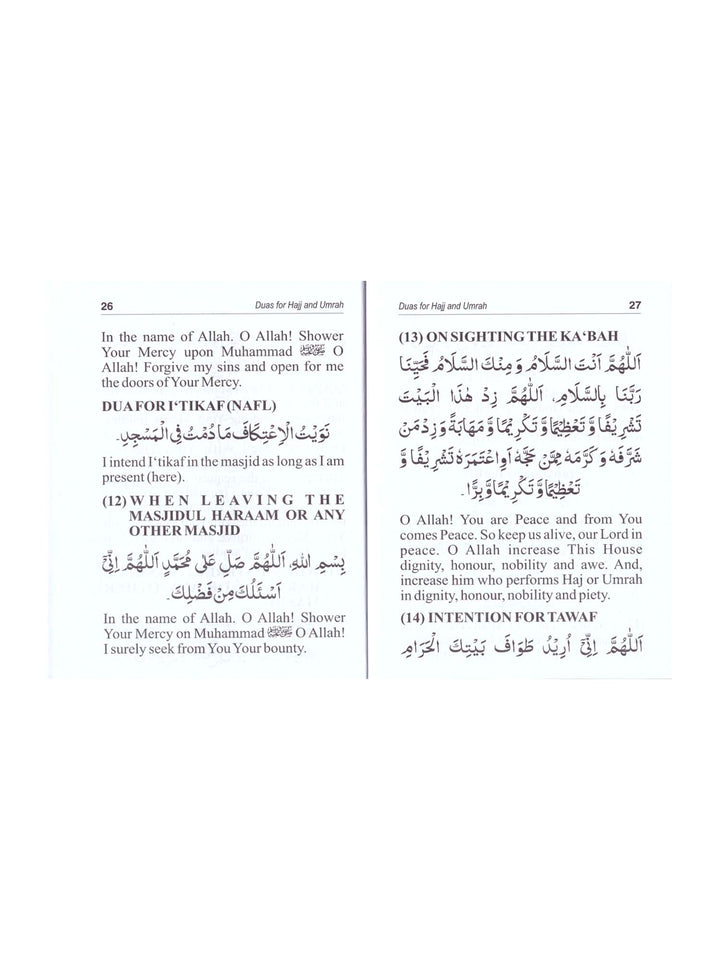 26
Duas for Hajj and Umrah
In the name of Allah. O Allah! Shower
Your Mercy upon Muhammad ﷺ O
Allah! Forgive my sins and open for me
the doors of Your Mercy.
DUA FOR I‘TIKAF (NAFL)
نَوَيْتُ الْاِعْتِكَافَ مَا دُمْتُ فِى الْمَسْجِدِ۔
I intend I‘tikaf in the masjid as long as I am
present (here).
(12) WHEN LEAVING THE
MASJIDUL HARAAM OR ANY
OTHER MASJID
بِسْمِ اللهِ، اَللّٰهُمَّ صَلِّ عَلٰى مُحَمَّدٍ اَللّٰهُمَّ اِنِّىْٓ
اَسْئَلُكَ مِنْ فَضْلِكَ۔
In the name of Allah. O Allah! Shower
Your Mercy on Muhammad ﷺ O Allah!
I surely seek from You Your bounty.
Duas for Hajj and Umrah
27
(13) ON SIGHTING THE KA‘BAH
اَللّٰهُمَّ اَنْتَ السَّلَامُ وَ مِنْكَ السَّلَامُ فَحَيِّنَا
رَبَّنَا بِالسَّلَامِ، اَللّٰهُمَّ زِدْ هٰذَا الْبَيْتَ
تَشْرِيْفًا وَّ تَعْظِيْمًا وَّ تَكْرِيْمًا وَّ مَهَابَةً وَّ زِدْ مَنْ
شَرَّفَهٗ وَ كَرَّمَهٗ مِمَّنْ حَجَّهٗ اَوِ اعْتَمَرَهٗ تَشْرِيْفًا وَّ
تَعْظِيْمًا وَّ تَكْرِيْمًا وَّ بِرًّا۔
O Allah! You are Peace and from You
comes Peace. So keep us alive, our Lord in
peace. O Allah increase This House
dignity, honour, nobility and awe. And,
increase him who performs Haj or Umrah
in dignity, honour, nobility and piety.
(14) INTENTION FOR TAWAF
اَللّٰهُمَّ اِنِّىْٓ اُرِيْدُ طَوَافَ بَيْتِكَ الْحَرَامِ